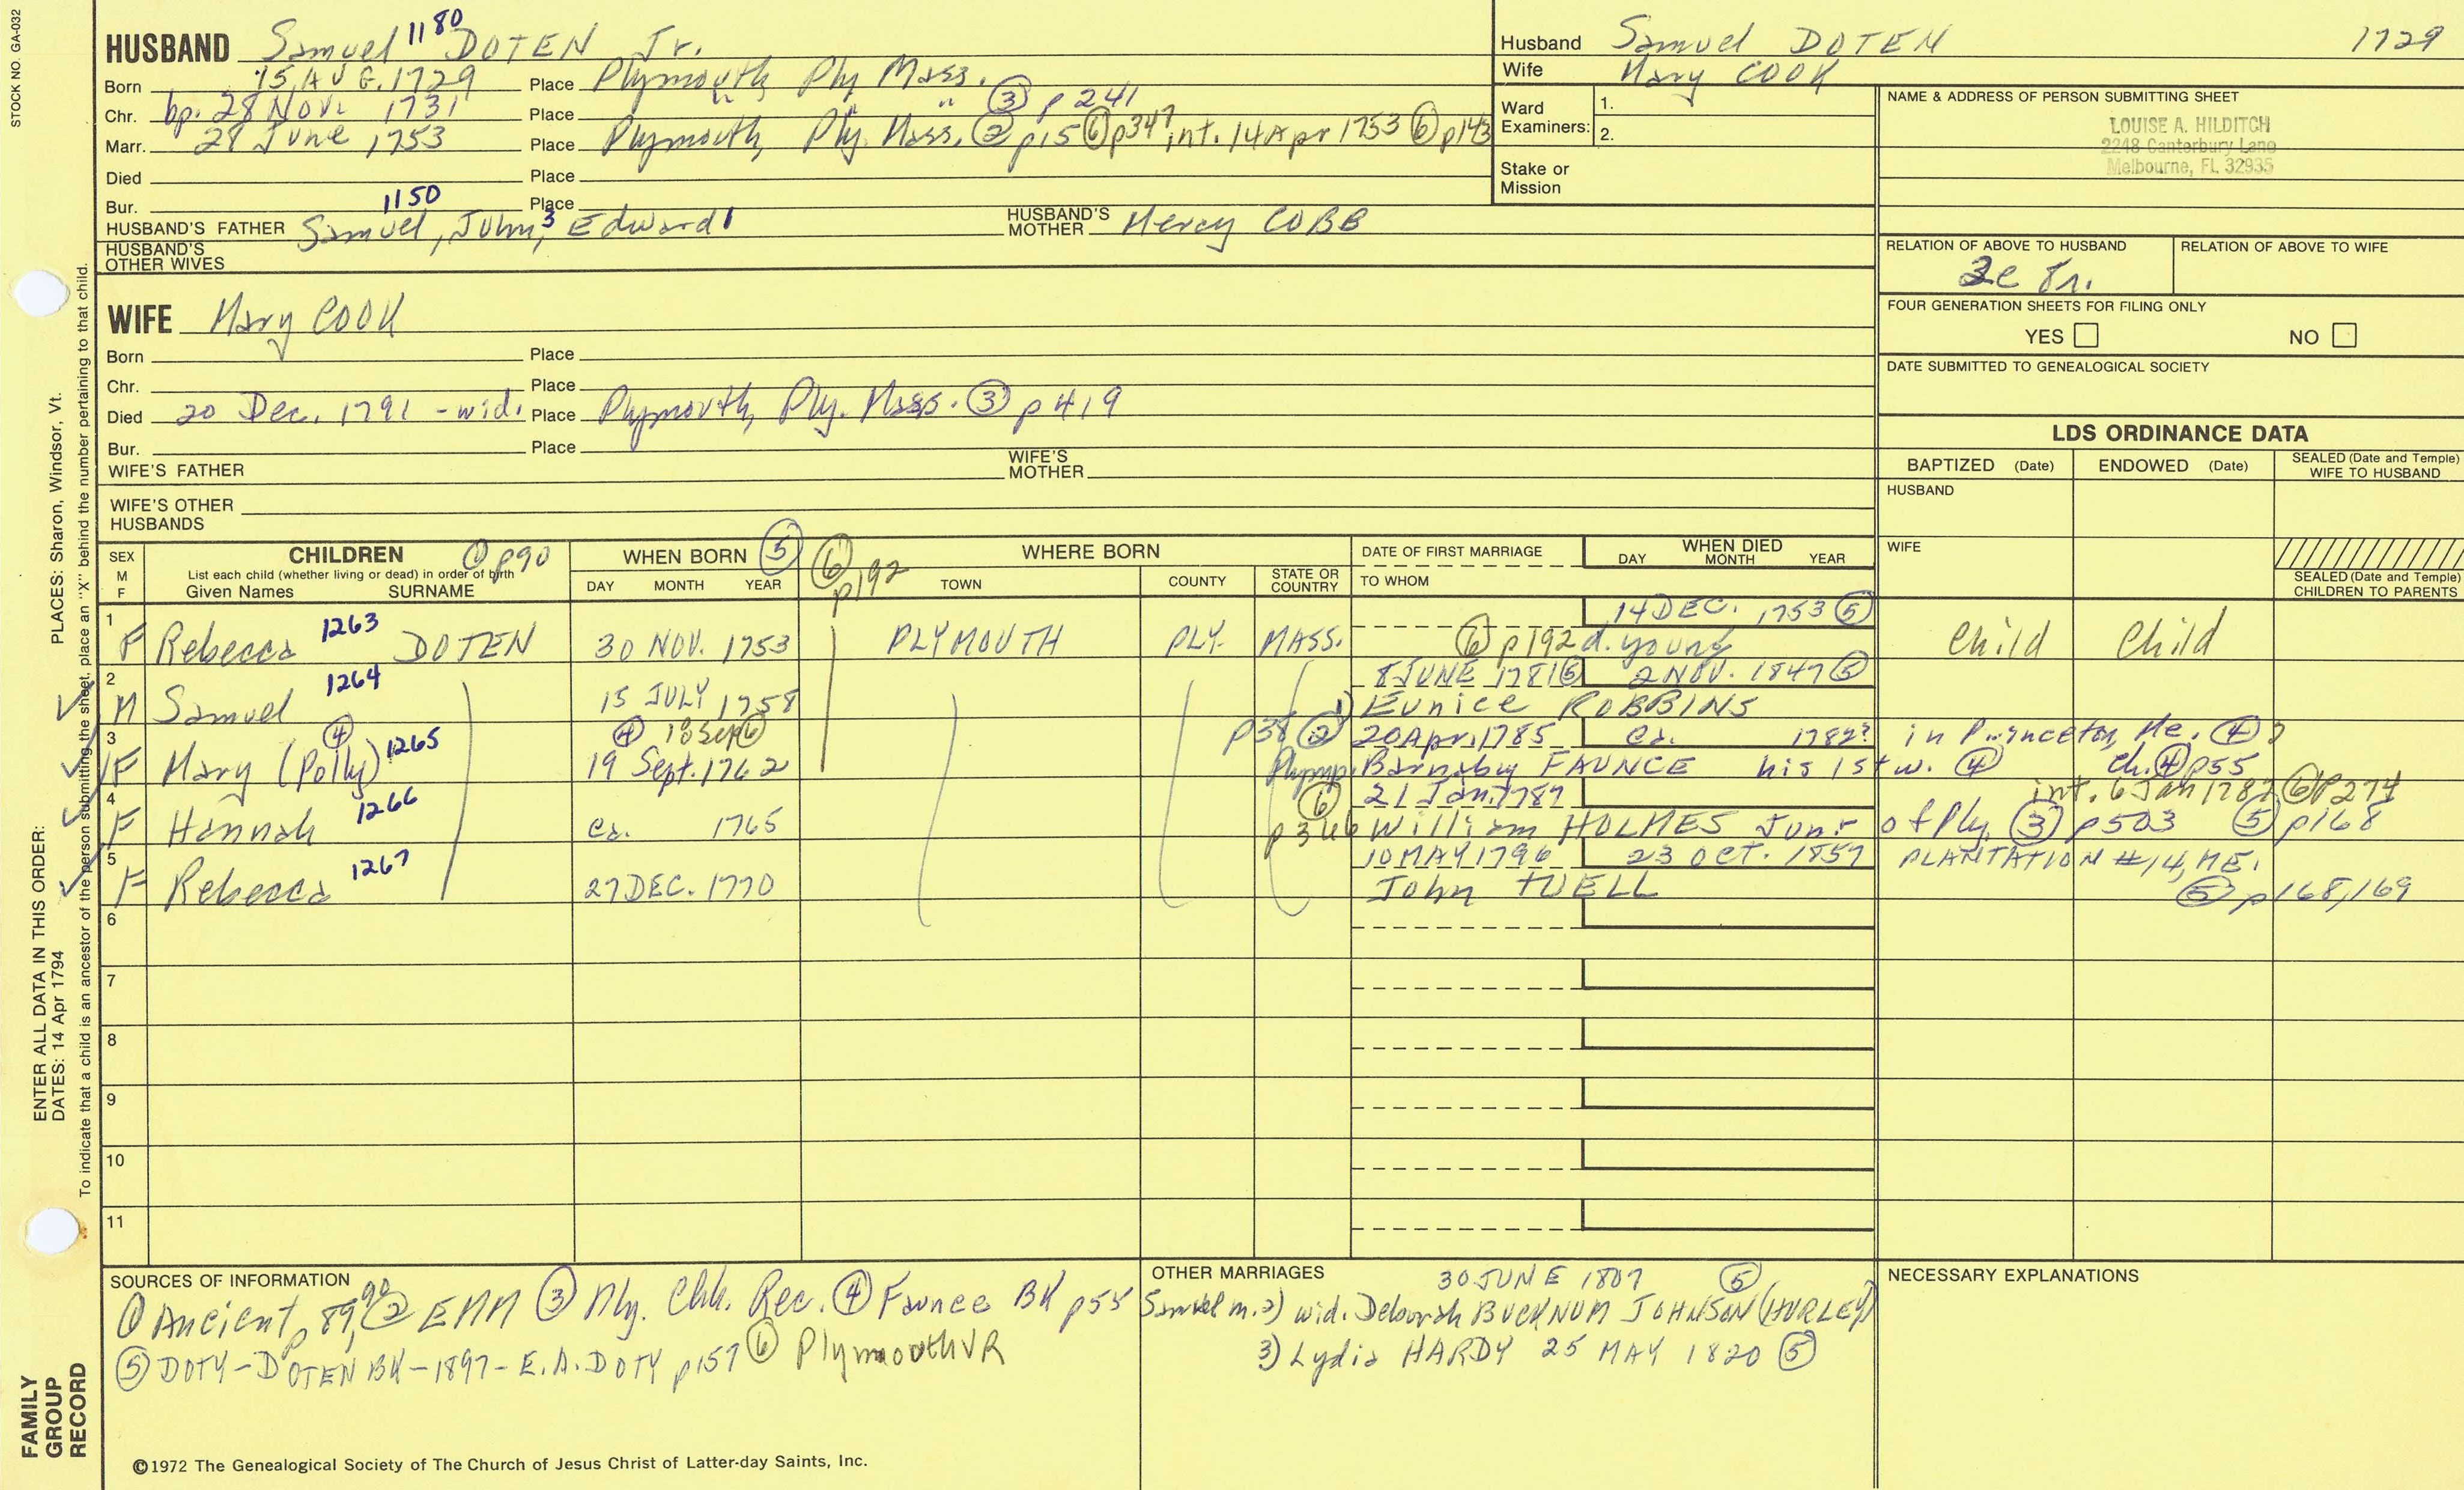 STOCK NO. GA-032
HUSBAND Samuel 1180 DOTEN Jr.
Born 15 AUG. 1729 Place Plymouth Ply Mass.
Chr. bp. 28 Nov. 1731 Place " " ③ p 241
Marr. 28 June 1753 Place Plymouth, Ply. Mass. ② p15 ⑥ p347 int. 14 Apr 1753 ⑥ p143
Died Place
Bur. Place
1150
HUSBAND'S FATHER Samuel, John, 3 Edward 1 HUSBAND'S MOTHER Mercy COBB
HUSBAND'S OTHER WIVES
WIFE Mary COOK
Born Place
Chr. Place
Died 20 Dec. 1791 - wid. Place Plymouth, Ply. Mass. ③ p 419
Bur. Place
WIFE'S FATHER WIFE'S MOTHER
WIFE'S OTHER HUSBANDS
Husband Samuel DOTEN 1729
Wife Mary COOK
Ward Examiners: 1.
2.
Stake or Mission
NAME & ADDRESS OF PERSON SUBMITTING SHEET
LOUISE A. HILDITCH
2248 Canterbury Lane
Melbourne, FL 32935
RELATION OF ABOVE TO HUSBAND RELATION OF ABOVE TO WIFE
FOUR GENERATION SHEETS FOR FILING ONLY
YES NO
DATE SUBMITTED TO GENEALOGICAL SOCIETY
LDS ORDINANCE DATA
BAPTIZED (Date) ENDOWED (Date) SEALED (Date and Temple) WIFE TO HUSBAND
HUSBAND
WIFE
SEALED (Date and Temple) CHILDREN TO PARENTS
SEX M F CHILDREN ① p90 WHEN BORN ⑤ ⑥ p192 WHERE BORN DATE OF FIRST MARRIAGE WHEN DIED
List each child (whether living or dead) in order of birth
Given Names SURNAME DAY MONTH YEAR TOWN COUNTY STATE OR COUNTRY TO WHOM DAY MONTH YEAR
1 14 DEC. 1753 ⑤
F Rebecca 1263 DOTEN 30 NOV. 1753 PLYMOUTH PLY. MASS. ⑥ p192 d. young Child Child
2 8 JUNE 1781 ⑤ 2 NOV. 1847 ⑤
M Samuel 1264 15 JULY 1758 1) Eunice ROBBINS
3 ④ ④ 18 Sep ⑥ p38 ② 20 Apr. 1785 ca. 1782? in Princeton, Me. ④ ?
F Mary (Polly) 1265 19 Sept. 1762 Plymp. Barnaby FAUNCE his 1st w. ④ ch. ④ p55
4 ⑥ 21 Jan. 1787 int. 6 Jan 1787 ⑥ p274
F Hannah 1266 ca. 1765 p346 William HOLMES Junr of Ply. ③ p503 ⑤ p168
5 10 MAY 1796 23 OCT. 1857 PLANTATION #14, ME.
F Rebecca 1267 27 DEC. 1770 John TUELL ⑤ p168,169
6
7
8
9
10
11
SOURCES OF INFORMATION
① Ancient p 89, 90 ② EMM ③ Ply. Chh. Rec. ④ Faunce BK p55
⑤ DOTY-DOTEN BK-1897-E.A. DOTY p157 ⑥ Plymouth VR
OTHER MARRIAGES 30 JUNE 1807 ⑤
Samuel m. 2) wid. Deborah BUCKNUM JOHNSON (HURLEY)
3) Lydia HARDY 25 MAY 1820 ⑤
NECESSARY EXPLANATIONS
©1972 The Genealogical Society of The Church of Jesus Christ of Latter-day Saints, Inc.
FAMILY GROUP RECORD
ENTER ALL DATA IN THIS ORDER:
DATES: 14 Apr 1794 PLACES: Sharon, Windsor, Vt.
To indicate that a child is an ancestor of the person submitting the sheet, place an "X" behind the number pertaining to that child.